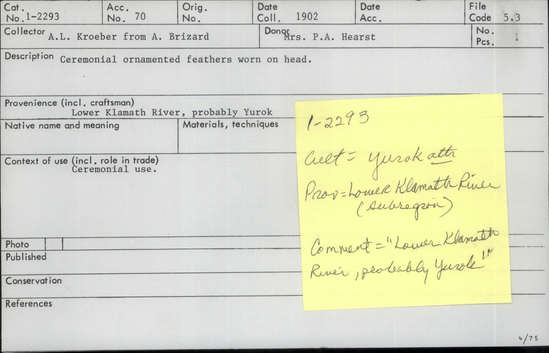 Cat. No. 1-2293 Acc. No. 70 Orig. No. Date Coll. 1902 Date Acc. File Code 5.3
Collector A.L. Kroeber from A. Brizard Donor Mrs. P.A. Hearst No. Pcs. 1
Description Ceremonial ornamented feathers worn on head.
Provenience (incl. craftsman)
Lower Klamath River, probably Yurok
Native name and meaning Materials, techniques
Context of use (incl. role in trade)
Ceremonial use.
Photo
Published
Conservation
References
4/75
1-2293
Cult = Yurok attr
Prov = Lower Klamath River
(subregion)
Comment = "Lower Klamath
River, probably Yurok"